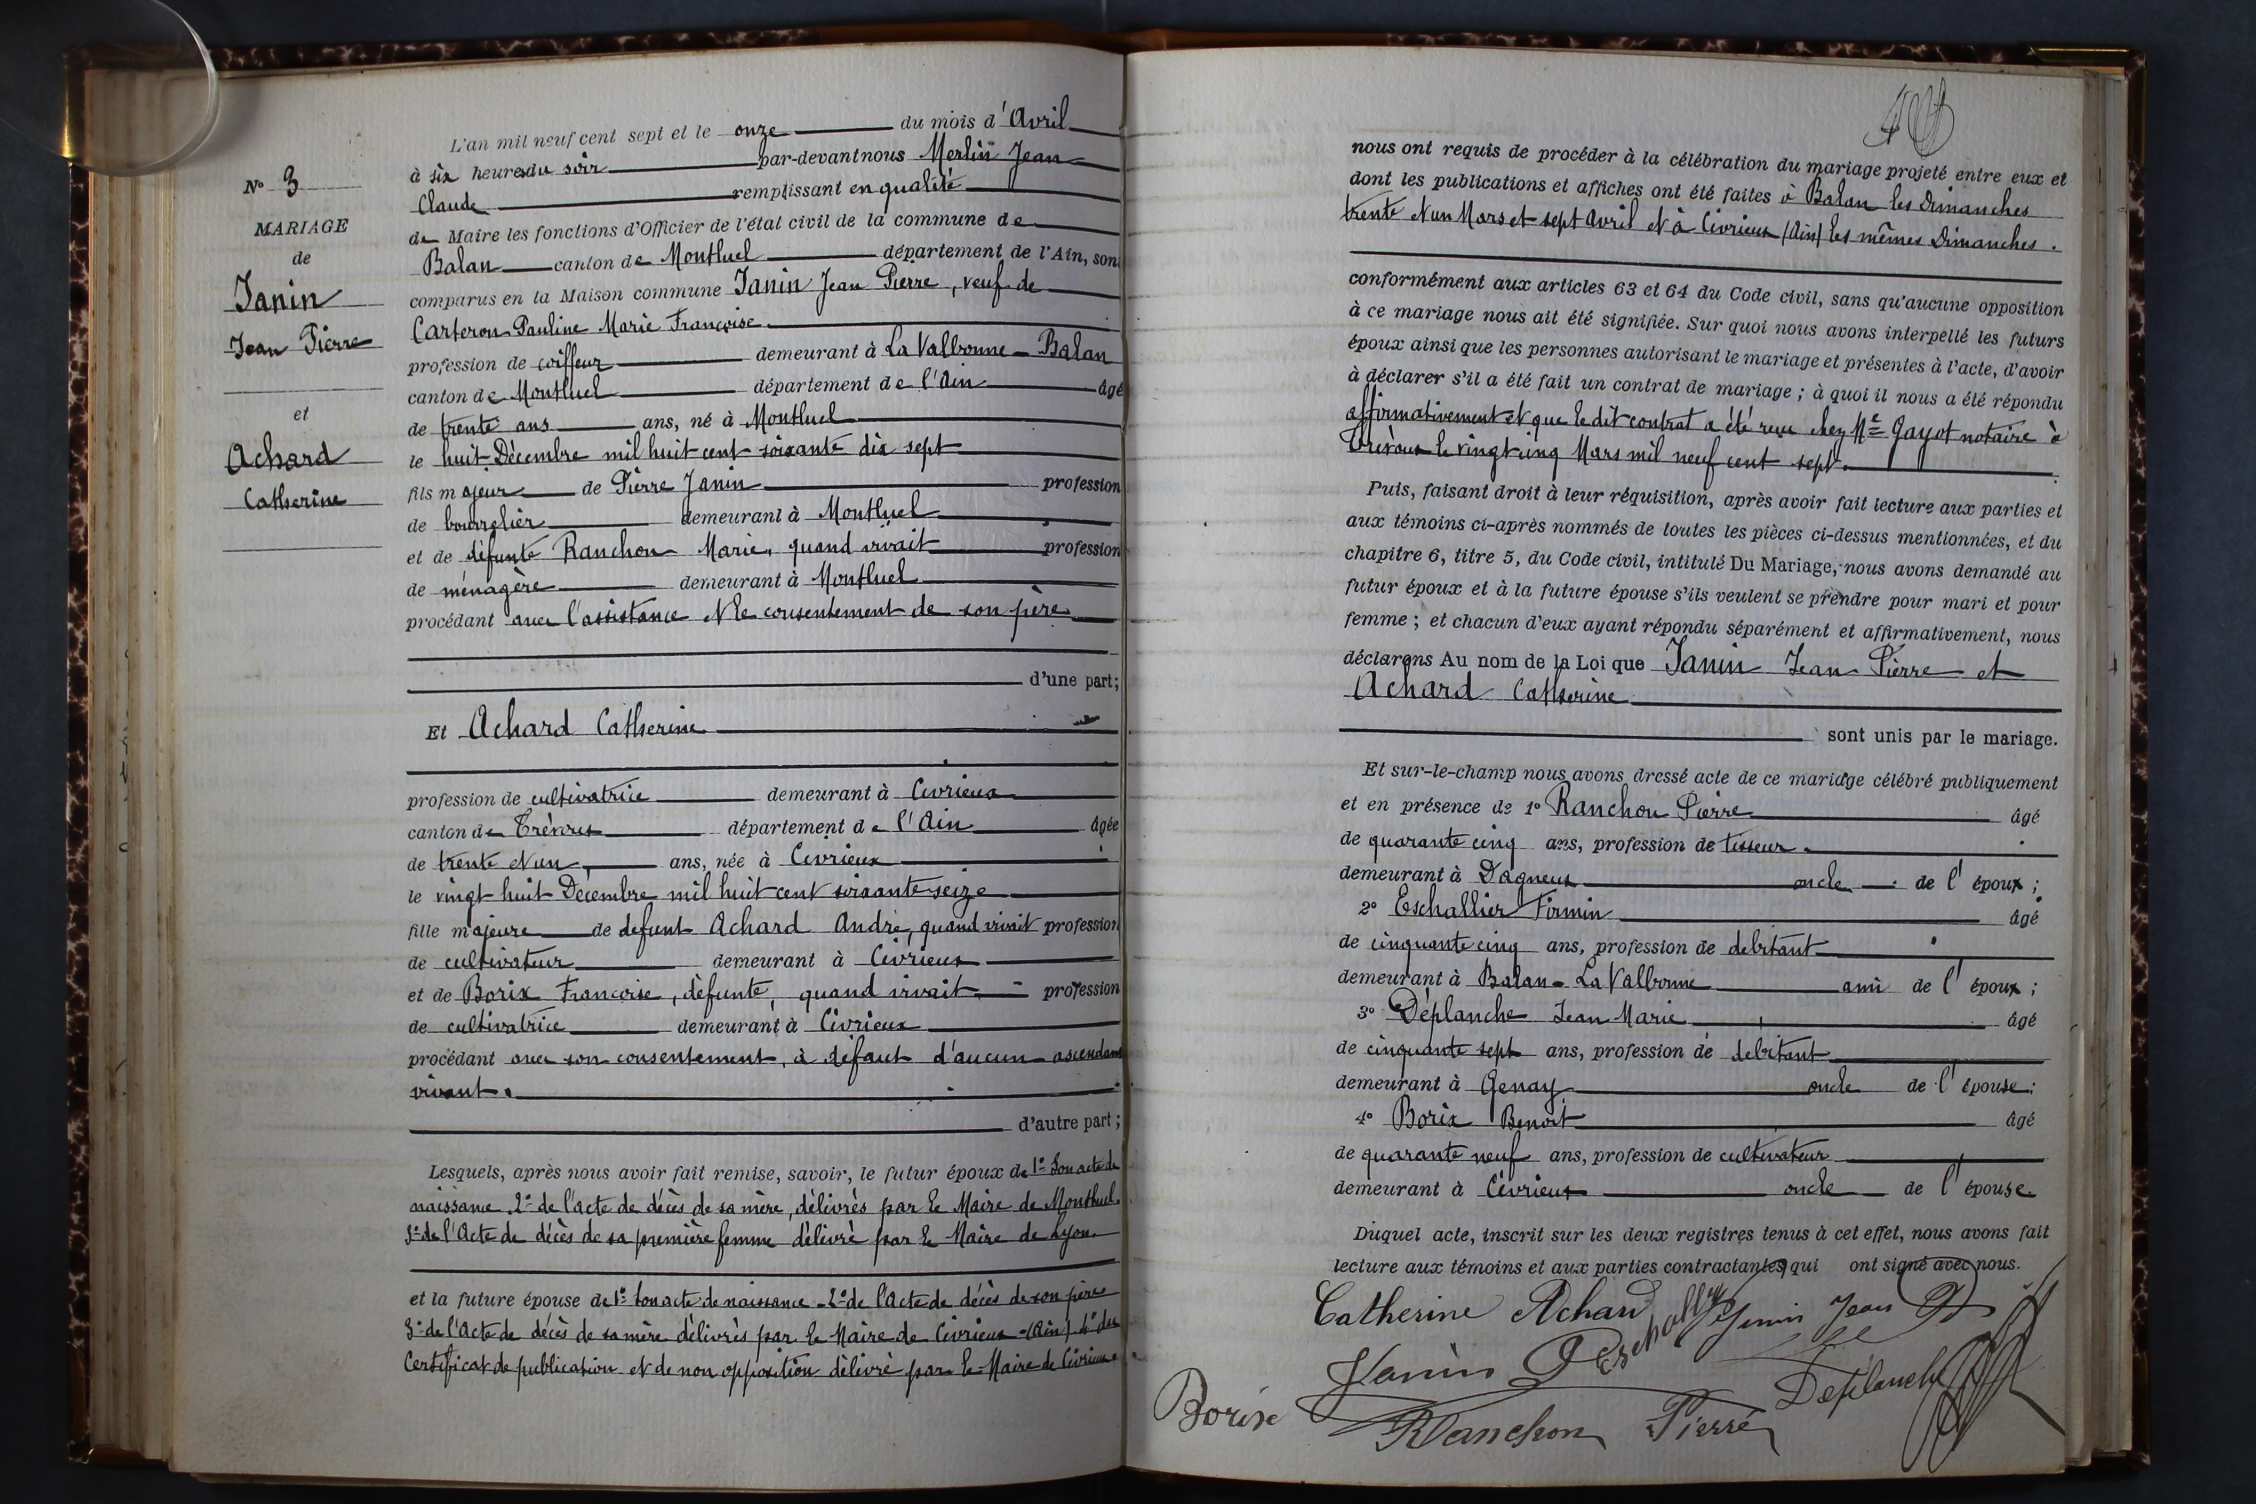 N° 3
MARIAGE
de
Janin
Jean Pierre
et
Achard
Catherine
L'an mil neuf cent sept et le onze du mois d'Avril
à six heures du soir par-devant nous Merlin Jean
Claude remplissant en qualité
de Maire les fonctions d'Officier de l'état civil de la commune de
Balan canton de Montluel département de l'Ain, son
comparus en la Maison commune Janin Jean Pierre, veuf de
Carteron Pauline Marie Françoise
profession de coiffeur demeurant à La Valbonne - Balan
canton de Montluel département de l'Ain âgé
de trente ans ans, né à Montluel
le huit Décembre mil huit cent soixante dix sept
fils majeur de Pierre Janin profession
de bourrelier demeurant à Montluel
et de défunte Ranchon Marie, quand vivait profession
de ménagère demeurant à Montluel
procédant avec l'assistance et le consentement de son père
d'une part;
Et Achard Catherine
profession de cultivatrice demeurant à Civrieux
canton de Trévoux département de l'Ain âgée
de trente et un ans, née à Civrieux
le vingt huit Décembre mil huit cent soixante seize
fille majeure de défunt Achard André, quand vivait profession
de cultivateur demeurant à Civrieux
et de Borix Françoise, défunte, quand vivait profession
de cultivatrice demeurant à Civrieux
procédant avec son consentement, à défaut d'aucun ascendant
vivant.
d'autre part;
Lesquels, après nous avoir fait remise, savoir, le futur époux de 1° Son acte de
naissance 2° de l'acte de décès de sa mère, délivrés par le Maire de Montluel
3° de l'Acte de décès de sa première femme délivré par le Maire de Lyon.
et la future épouse de 1° son acte de naissance - 2° de l'Acte de décès de son père
3° de l'Acte de décès de sa mère délivrés par le Maire de Civrieux (Ain) 4° du
Certificat de publication et de non opposition délivré par le Maire de Civrieux
nous ont requis de procéder à la célébration du mariage projeté entre eux et
dont les publications et affiches ont été faites à Balan les Dimanches
trente et un Mars et sept Avril et à Civrieux (Ain) les mêmes Dimanches.
conformément aux articles 63 et 64 du Code civil, sans qu'aucune opposition
à ce mariage nous ait été signifiée. Sur quoi nous avons interpellé les futurs
époux ainsi que les personnes autorisant le mariage et présentes à l'acte, d'avoir
à déclarer s'il a été fait un contrat de mariage; à quoi il nous a été répondu
affirmativement et que le dit contrat a été reçu chez Me Gayot notaire à
Trévoux le vingt cinq Mars mil neuf cent sept.
Puis, faisant droit à leur réquisition, après avoir fait lecture aux parties et
aux témoins ci-après nommés de toutes les pièces ci-dessus mentionnées, et du
chapitre 6, titre 5, du Code civil, intitulé Du Mariage, nous avons demandé au
futur époux et à la future épouse s'ils veulent se prendre pour mari et pour
femme; et chacun d'eux ayant répondu séparément et affirmativement, nous
déclarons Au nom de la Loi que Janin Jean Pierre et
Achard Catherine
sont unis par le mariage.
Et sur-le-champ nous avons dressé acte de ce mariage célébré publiquement
et en présence de 1° Ranchon Pierre âgé
de quarante cinq ans, profession de tisseur
demeurant à Dagneux oncle de l'époux;
2° Eschallier Firmin âgé
de cinquante cinq ans, profession de debitant
demeurant à Balan - La Valbonne ami de l'époux;
3° Déplanche Jean Marie âgé
de cinquante sept ans, profession de debitant
demeurant à Genay oncle de l'épouse;
4° Borix Benoit âgé
de quarante neuf ans, profession de cultivateur
demeurant à Civrieux oncle de l'épouse.
Duquel acte, inscrit sur les deux registres tenus à cet effet, nous avons fait
lecture aux témoins et aux parties contractantes, qui ont signé avec nous.
Catherine Achard Janin Jean
Janin P Eschallier
Déplanche
Borix
Ranchon Pierre